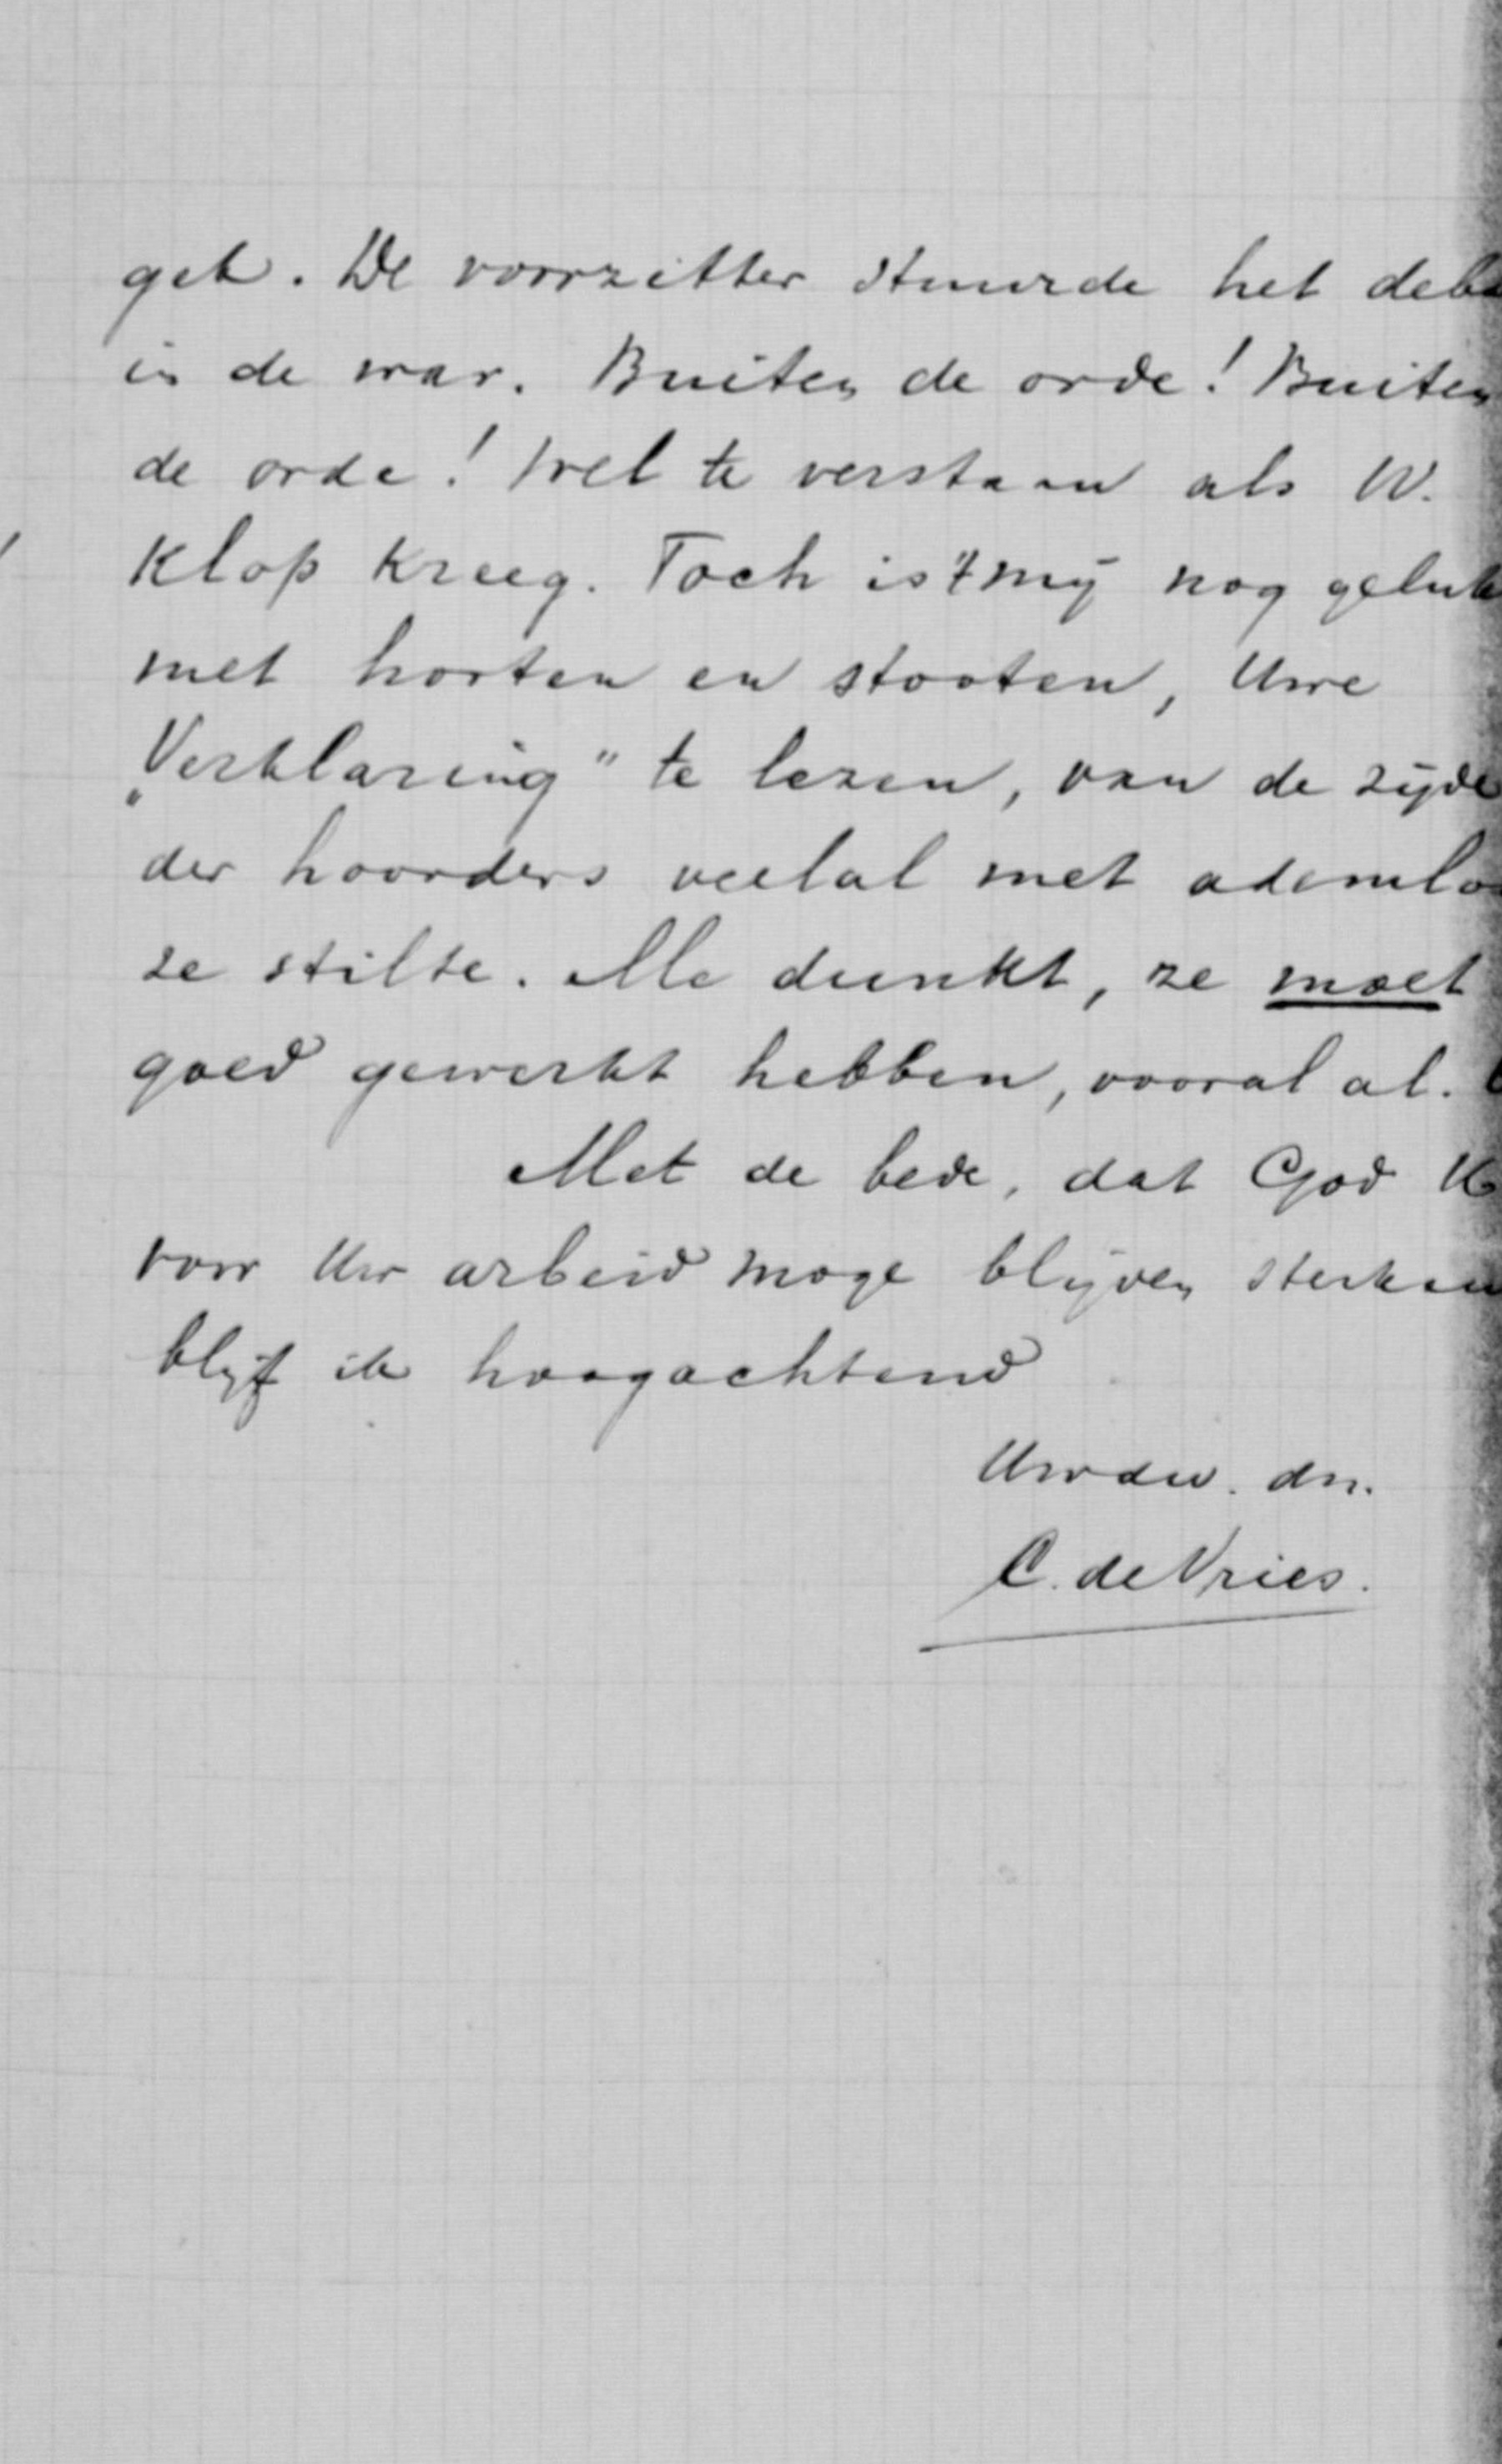 gek. De voorzitter stuurde het deba
in de war. Buiten de orde! Buiten
de orde! Wel te verstaan als W.
klop kreeg. Toch is 't mij nog geluk
met horten en stooten, Uwe
„Verklaring" te lezen, van de zijde
der hoorders veelal met ademlo
ze stilte. Me dunkt, ze moet
goed gewerkt hebben, vooral al.
Met de bede, dat God U
voor Uw arbeid moge blijven sterken
blijf ik hoogachtend
Uwdw. dn.
C. de Vries.